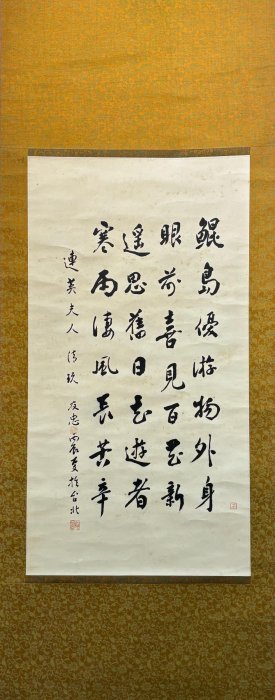 鯤島優游物外身
眼前喜見百花新
遙思舊日花遊者
寒雨淒風長苦辛
連英夫人清玩
友忠丙辰夏於台北